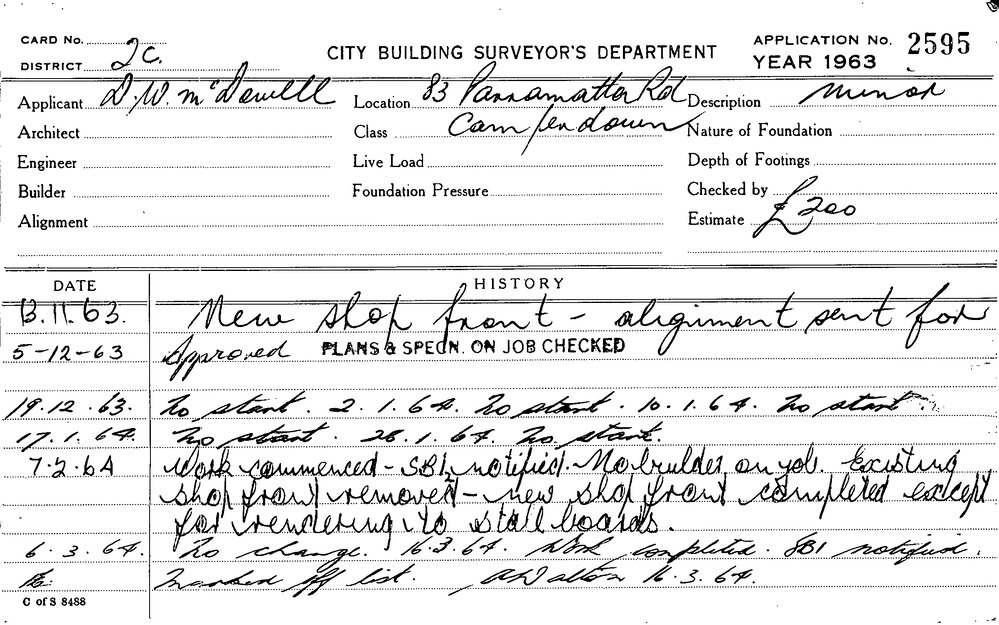 CARD No.
DISTRICT 2c.
CITY BUILDING SURVEYOR'S DEPARTMENT
APPLICATION No. 2595
YEAR 1963
Applicant D.W. McDowell Location 83 Parramatta Rd Description minor
Architect Class Camperdown Nature of Foundation
Engineer Live Load Depth of Footings
Builder Foundation Pressure Checked by
Alignment Estimate £200
DATE HISTORY
13.11.63. New shop front - alignment sent for
5-12-63 Approved PLANS & SPECN. ON JOB CHECKED
19.12.63. No start. 2.1.64. No start. 10.1.64. No start.
17.1.64. No start. 28.1.64. No start.
7.2.64 Work commenced - SBI notified. No builder on job. Existing
shop front removed - new shop front completed except
for rendering to stall boards.
6.3.64. No change. 16.3.64. Work completed. SBI notified.
Marked off list. 16.3.64.
C of S 8488